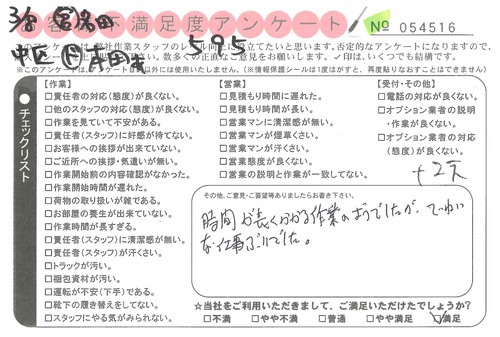 3/8
お客様不満足度アンケート
№ 054516
中区
595
このアンケートは、弊社作業スタッフのレベル向上に役立てたいと思います。否定的なアンケートになりますので、
数多くの正直なご意見をお願いします。✓印は、いくつでも結構です。
※このアンケートは、以外には使用いたしません。(※情報保護シールは1度がすと、再度貼りなおすことはできません)
チェックリスト
【作業】
□責任者の対応(態度)が良くない。
□他のスタッフの対応(態度)が良くない。
□作業を見ていて不安がある。
□責任者(スタッフ)に好感が持てない。
□お客様への挨拶が出来ていない。
□ご近所への挨拶・気遣いが無い。
□作業開始前の内容確認がなかった。
□作業開始時間が遅れた。
□荷物の取り扱いが雑である。
□お部屋の養生が出来ていない。
□作業時間が長すぎる。
□責任者(スタッフ)に清潔感が無い。
□責任者(スタッフ)が汗くさい。
□トラックが汚い。
□梱包資材が汚い。
□運転が不安(下手)である。
□靴下の履き替えをしてない。
□スタッフにやる気がみられない。
【営業】
□見積もり時間に遅れた。
□見積もり時間が長い。
□営業マンに清潔感が無い。
□営業マンが煙草くさい。
□営業マンが汗くさい。
□営業態度が良くない。
□営業の説明と作業が一致してない。
【受付・その他】
□電話の対応が良くない。
□オプション業者の説明
・作業が良くない。
□オプション業者の対応
(態度)が良くない。
+2点
その他、ご意見・ご要望等ありましたらお書き下さい。
時間が長くかかる作業のようでしたが、ていねい
な仕事ぶりでした。
☆当社をご利用いただきまして、ご満足いただけたでしょうか?
□不満 □やや不満 □普通 □やや満足 ☑満足